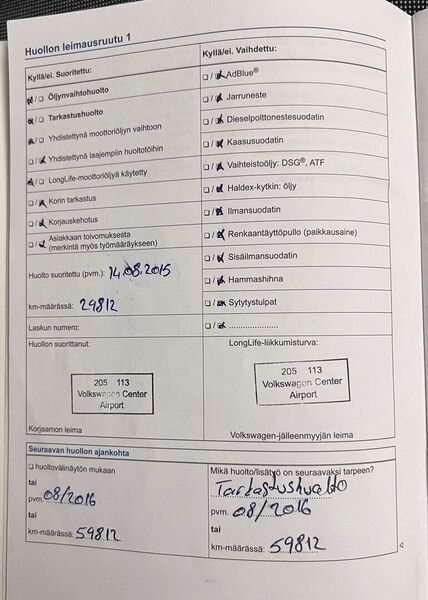 Huollon leimausruutu 1
Kyllä/ei. Suoritettu:
Öljynvaihtohuolto
Tarkastushuolto
Yhdistettynä moottoriöljyn vaihtoon
Yhdistettynä laajempiin huoltotöihin
LongLife-moottoriöljyä käytetty
Korin tarkastus
Korjauskehotus
Asiakkaan toivomuksesta
(merkintä myös työmääräykseen)
Huolto suoritettu (pvm.): 14.08.2015
km-määrässä: 29812
Laskun numero:
Huollon suorittanut:
205 113
Volkswagen Center
Airport
Korjaamon leima
Kyllä/ei. Vaihdettu:
AdBlue®
Jarruneste
Dieselpolttonestesuodatin
Kaasusuodatin
Vaihteistoöljy: DSG®, ATF
Haldex-kytkin: öljy
Ilmansuodatin
Renkaantäyttöpullo (paikkausaine)
Sisäilmansuodatin
Hammashihna
Sytytystulpat
LongLife-liikkumisturva:
205 113
Volkswagen Center
Airport
Volkswagen-jälleenmyyjän leima
Seuraavan huollon ajankohta
huoltovälinäytön mukaan
tai
pvm. 08/2016
tai
km-määrässä: 59812
Mikä huolto/lisätyö on seuraavaksi tarpeen?
Tarkastushuolto
pvm. 08/2016
tai
km-määrässä: 59812